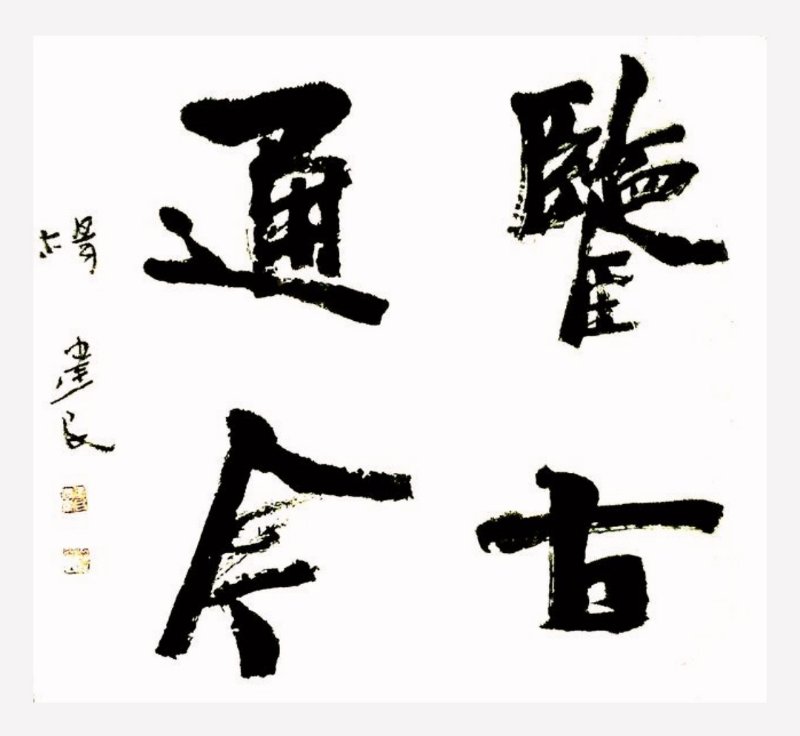 鑒古
通今
楊建民